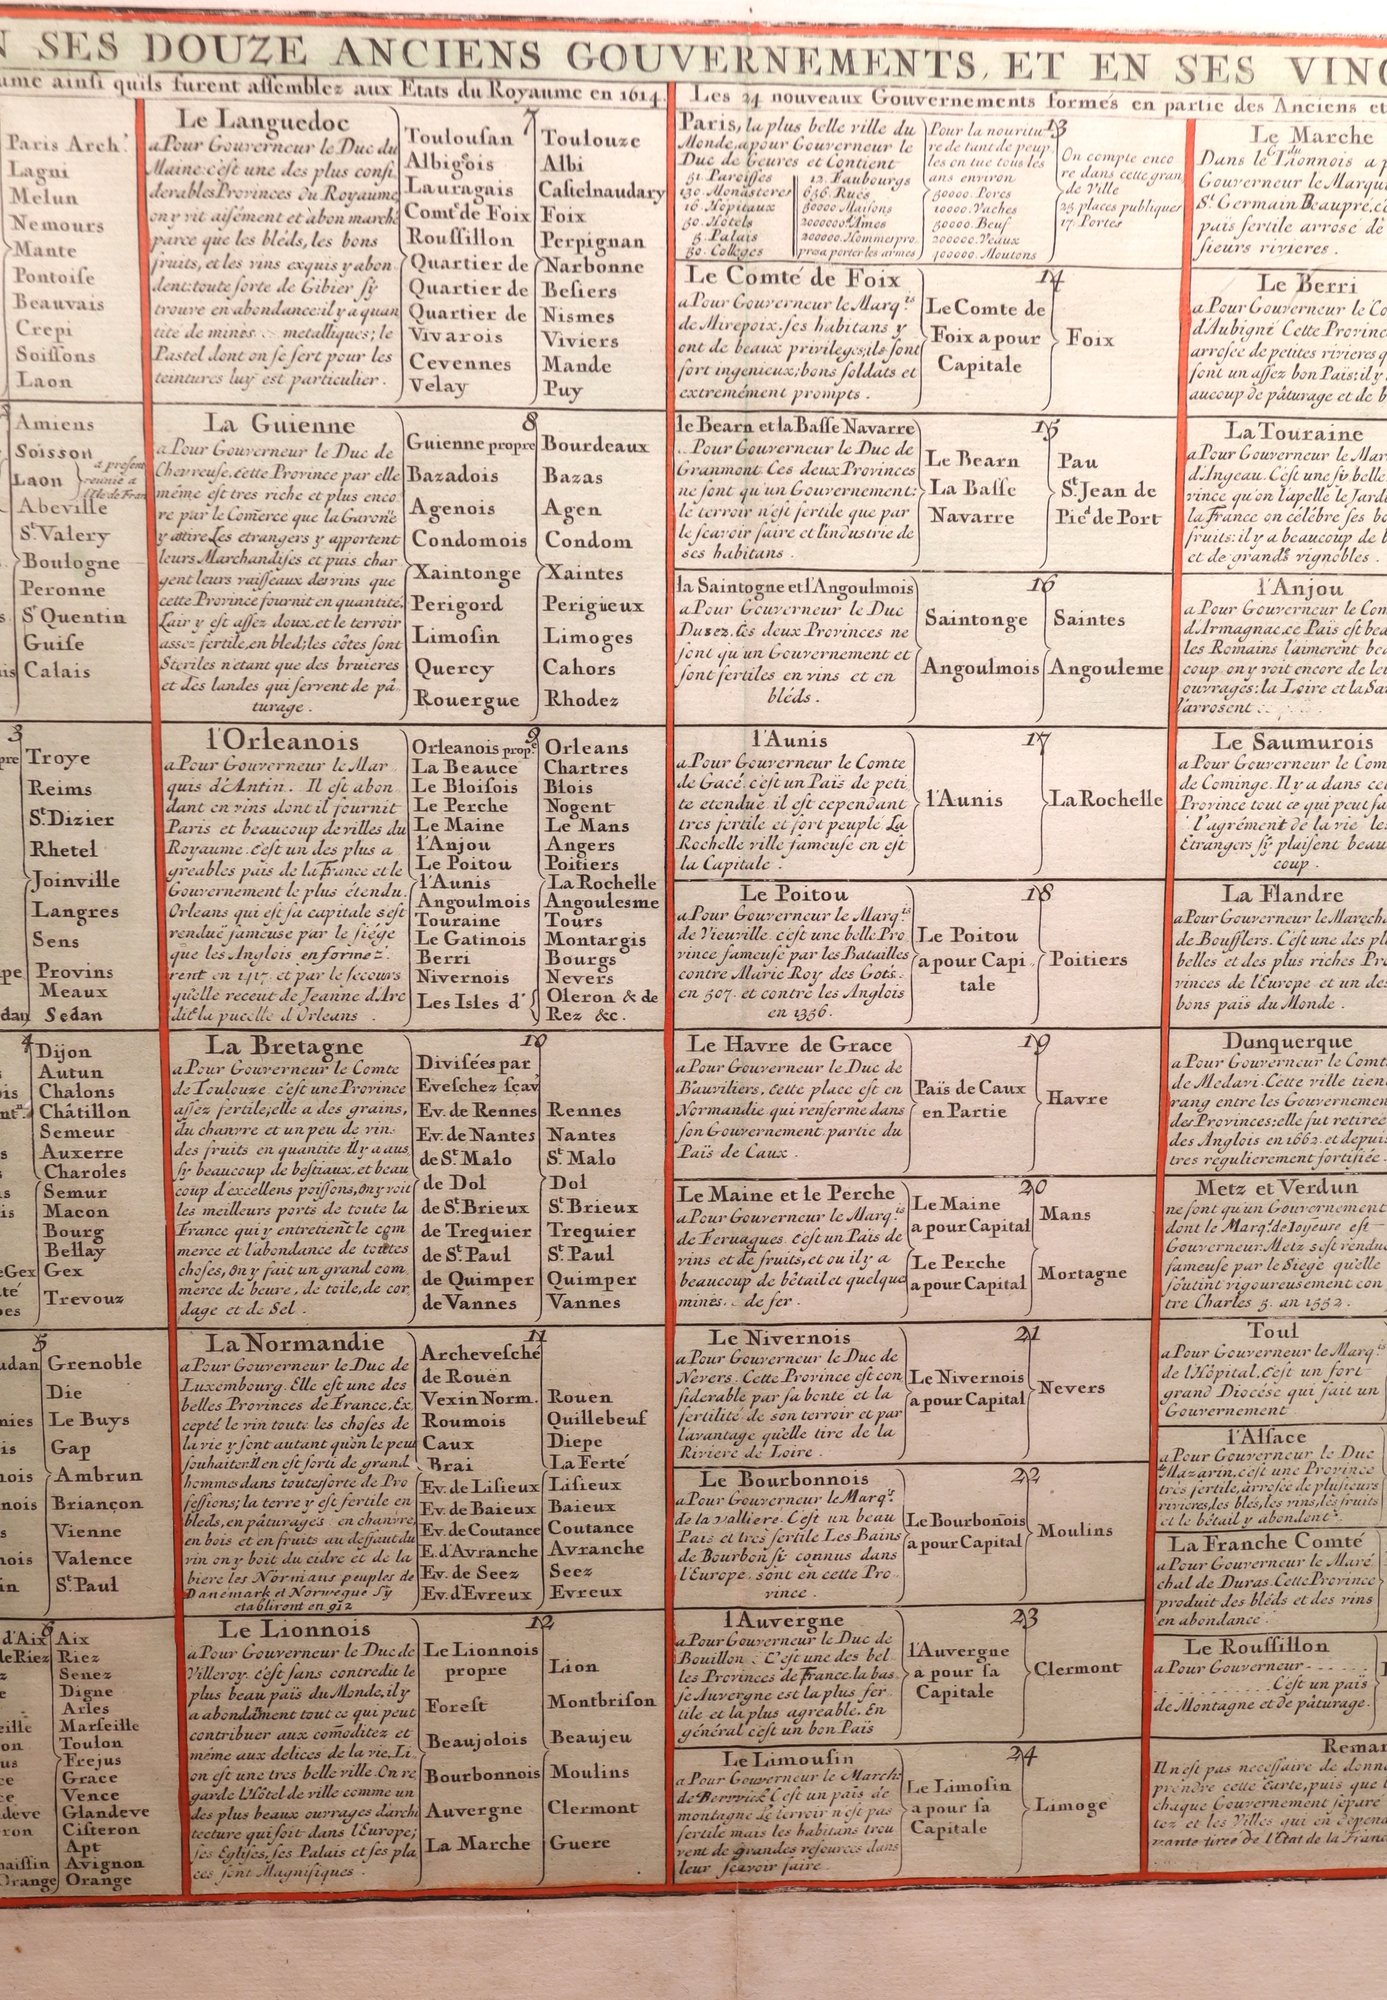 SES DOUZE ANCIENS GOUVERNEMENTS, ET EN SES
ainsi qu'ils furent assemblez aux Etats du Royaume en 1614.
Les 24 nouveaux Gouvernements formés en partie des Anciens et
Paris Arch.
Lagni
Melun
Nemours
Mante
Pontoise
Beauvais
Crepi
Soissons
Laon
Amiens
Soisson
Laon
a present
reunie a
l'Ile de Fran
Abeville
St. Valery
Boulogne
Peronne
St Quentin
Guise
Calais
3
Troye
Reims
St. Dizier
Rhetel
Joinville
Langres
Sens
Provins
Meaux
Sedan
4
Dijon
Autun
Chalons
Châtillon
Semeur
Auxerre
Charoles
Semur
Macon
Bourg
Bellay
Gex
Trevouz
5
Grenoble
Die
Le Buys
Gap
Ambrun
Briançon
Vienne
Valence
St. Paul
6
d'Aix Aix
de Riez Riez
Senez
Digne
Arles
Marseille
Toulon
Frejus
Grace
Vence
Glandeve
Cisteron
Apt
Avignon
Orange
Le Languedoc 7
a Pour Gouverneur le Duc du
Maine: c'est une des plus consi
derables Provinces du Royaume
on y vit aisément et a bon marché
parce que les bléds, les bons
fruits, et les vins exquis y abon
dent: toute sorte de Gibier s'y
trouve en abondance: il y a quan
tité de mines metalliques; le
Pastel dont on se sert pour les
teintures luy est particulier.
Toulousan Toulouze
Albigeois Albi
Lauragais Castelnaudary
Comté de Foix Foix
Roussillon Perpignan
Quartier de Narbonne
Quartier de Besiers
Quartier de Nismes
Vivarois Viviers
Cevennes Mande
Velay Puy
La Guienne 8
a Pour Gouverneur le Duc de
Chevreuse. cette Province par elle
même est tres riche et plus enco
re par le Comerce que la Garonne
y attire Les etrangers y apportent
leurs Marchandises et puis char
gent leurs vaisseaux des vins que
cette Province fournit en quantité.
L'air y est assez doux, et le terroir
assez fertile, en bled; les côtes sont
Steriles n'etant que des bruieres
et des landes qui servent de pâ
turage.
Guienne propre Bourdeaux
Bazadois Bazas
Agenois Agen
Condomois Condom
Xaintonge Xaintes
Perigord Perigueux
Limosin Limoges
Quercy Cahors
Rouergue Rhodez
l'Orleanois 9
a Pour Gouverneur le Mar
quis d'Antin. Il est abon
dant en vins dont il fournit
Paris et beaucoup de villes du
Royaume. c'est un des plus a
greables pais de la France et le
Gouvernement le plus étendu.
Orleans qui est sa capitale s'est
rendue fameuse par le siége
que les Anglois en formez
rent en 1417. et par le secours
qu'elle receut de Jeanne d'Arc
dite la pucelle d'Orleans.
Orleanois prop. Orleans
La Beauce Chartres
Le Bloisois Blois
Le Perche Nogent
Le Maine Le Mans
l'Anjou Angers
Le Poitou Poitiers
l'Aunis La Rochelle
Angoulmois Angoulesme
Touraine Tours
Le Gatinois Montargis
Berri Bourgs
Nivernois Nevers
Les Isles d' Oleron & de
Rez &c.
La Bretagne 10
a Pour Gouverneur le Comte
de Toulouze c'est une Province
assez fertile; elle a des grains,
du chanvre et un peu de vin
des fruits en quantité Il y a aus
sy beaucoup de bestiaux, et beau
coup d'excellens poissons, On y voit
les meilleurs ports de toute la
France qui y entretient le com
merce et l'abondance de toutes
choses, On y fait un grand com
merce de beure, de toile, de cor
dage et de Sel.
Divisées par
Eveschez scav.
Ev. de Rennes Rennes
Ev. de Nantes Nantes
de St. Malo St. Malo
de Dol Dol
de St. Brieux St. Brieux
de Treguier Treguier
de St. Paul St. Paul
de Quimper Quimper
de Vannes Vannes
La Normandie 11
a Pour Gouverneur le Duc de
Luxembourg. Elle est une des
belles Provinces de France. Ex
cepté le vin toute les choses de
la vie y sont autant qu'on le peut
souhaiter. Il en est sorti de grand
hommes dans toutes sorte de Pro
fessions; la terre y est fertile en
bleds, en pâturages en chanvre,
en bois et en fruits au deffaut du
vin on y boit du cidre et de la
biere les Normans peuples de
Danemark et Norwegue s'y
etablirent en 912
Archevesché
de Rouen
Vexin Norm. Rouen
Roumois Quillebeuf
Caux Diepe
Brai La Ferté
Ev. de Lisieux Lisieux
Ev. de Baieux Baieux
Ev. de Coutance Coutance
E. d'Avranche Avranche
Ev. de Seez Seez
Ev. d'Evreux Evreux
Le Lionnois 12
a Pour Gouverneur le Duc de
Villeroy. c'est sans contredit le
plus beau païs du Monde, il y
a abondament tout ce qui peut
contribuer aux comoditez et
même aux delices de la vie. Li
on est une tres belle ville. On re
garde l'Hôtel de ville comme un
des plus beaux ouvrages d'archi
tecture qui soit dans l'Europe;
ses Eglises, ses Palais et ses pla
ces sont Magnifiques.
Le Lionnois
propre Lion
Forest Montbrison
Beaujolois Beaujeu
Bourbonnois Moulins
Auvergne Clermont
La Marche Guere
Paris, la plus belle ville du 13
Monde, a pour Gouverneur le
Duc de Gevres et Contient
51. Paroisses 12. Faubourgs
130. Monasteres 656. Rues
16. Hopitaux 50000. Maisons
50. Hôtels 2000000 d'Ames
5. Palais 200000. Hommes pro
50. Colleges pres a porter les armes
Pour la nouritu
re de tant de peup
les on tue tous les
ans environ
50000. Porcs
10000. Vaches
50000. Beuf
200000. Veaux
400000. Moutons
On compte enco
re dans cette gran
de Ville
25. places publiques
17. Portes
Le Comté de Foix 14
a Pour Gouverneur le Marq.is
de Mirepoix. ses habitans y
ont de beaux privileges; ils sont
fort ingenieux; bons soldats et
extremément prompts.
Le Comte de
Foix a pour
Capitale
Foix
le Bearn et la Basse Navarre 15
Pour Gouverneur le Duc de
Granmont Ces deux Provinces
ne sont qu'un Gouvernement;
le terroir n'est fertile que par
le scavoir faire et l'industrie de
ses habitans.
Le Bearn
La Basse
Navarre
Pau
St. Jean de
Pied de Port
la Saintogne et l'Angoulmois 16
a Pour Gouverneur le Duc
Dusez. les deux Provinces ne
font qu'un Gouvernement et
sont fertiles en vins et en
bléds.
Saintonge Saintes
Angoulmois Angouleme
l'Aunis 17
a Pour Gouverneur le Comte
de Gacé. c'est un Païs de peti
te etendue il est cependant
tres fertile et fort peuplé La
Rochelle ville fameuse en est
la Capitale.
l'Aunis La Rochelle
Le Poitou 18
a Pour Gouverneur le Marq.is
de Vieuville. c'est une belle Pro
vince fameuse par les Batailles
contre Alaric Roy des Gots.
en 507. et contre les Anglois
en 1356.
Le Poitou
a pour Capi
tale
Poitiers
Le Havre de Grace 19
a Pour Gouverneur le Duc de
Bauviliers. Cette place est en
Normandie qui renferme dans
son Gouvernement partie du
Païs de Caux.
Païs de Caux
en Partie
Havre
Le Maine et le Perche 20
a Pour Gouverneur le Marq.is
de Feruaques. C'est un Païs de
vins et de fruits, et ou il y a
beaucoup de bêtail et quelque
mines de fer.
Le Maine
a pour Capital Mans
Le Perche
a pour Capital Mortagne
Le Nivernois 21
a Pour Gouverneur le Duc de
Nevers. Cette Province est con
siderable par sa bonté et la
fertilité de son terroir et par
l'avantage qu'elle tire de la
Riviere de Loire.
Le Nivernois
a pour Capital
Nevers
Le Bourbonnois 22
a Pour Gouverneur le Marq.
de la Valliere. C'est un beau
Païs et tres fertile Les Bains
de Bourbon si connus dans
l'Europe sont en cette Pro
vince.
Le Bourbonois
a pour Capital
Moulins
l'Auvergne 23
a Pour Gouverneur le Duc de
Bouillon. C'est une des bel
les Provinces de France. la bas
se Auvergne est la plus fer
tile et la plus agreable. En
général c'est un bon Païs
l'Auvergne
a pour sa
Capitale
Clermont
Le Limousin 24
a Pour Gouverneur le Marech.
de Bervvick C'est un païs de
montagne Le terroir n'est pas
fertile mais les habitans trou
vent de grandes resources dans
leur scavoir faire.
Le Limosin
a pour sa
Capitale
Limoge
Le Marche
Dans le Lionnois a
Gouverneur le Marqu
St. Germain Beaupre, c'e
païs fertile arrosé de
sieurs rivieres.
Le Berri
a Pour Gouverneur le Co
d'Aubigné Cette Provinc
arrosée de petites rivieres q
font un assez bon Païs: il y
aucoup de pâturage et de b
La Touraine
a Pour Gouverneur le Mar
d'Angeau. C'est une si bel
vince qu'on l'apelle le Jardi
la France on célébre ses bo
fruits: il y a beaucoup de b
et de grands vignobles.
l'Anjou
a Pour Gouverneur le Com
d'Armagnac. ce Païs est beau
les Romains l'aimerent beau
coup. on y voit encore de leu
ouvrages: la Loire et la Sar
l'arrosent
Le Saumurois
a Pour Gouverneur le Com
de Cominge. Il y a dans ce
Province tout ce qui peut fa
l'agrément de la vie les
Etrangers s'y plaisent beau
coup.
La Flandre
a Pour Gouverneur le Marech
de Boufflers. C'est une des pl
belles et des plus riches Pro
vinces de l'Europe et un des
bons païs du Monde.
Dunquerque
a Pour Gouverneur le Comt
de Medavi. Cette ville tien
rang entre les Gouvernemen
des Provinces: elle fut retirée
des Anglois en 1662. et depuis
tres regulierement fortifiée.
Metz et Verdun
ne font qu'un Gouvernement
dont le Marq. de Joyeuse est
Gouverneur. Metz s'est rendue
fameuse par le Siege qu'elle
soûtint vigoureusement con
tre Charles 5. an 1552.
Toul
a Pour Gouverneur le Marq.is
de l'Hôpital. C'est un fort
grand Diocèse qui fait un
Gouvernement
l'Alsace
a Pour Gouverneur le Duc
de Mazarin. c'est une Province
tres fertile, arrosée de plusieurs
rivieres, les blés, les vins, les fruits
et le bêtail y abondent.
La Franche Comté
a Pour Gouverneur le Maré
chal de Duras. Cette Province
produit des bléds et des vins
en abondance.
Le Roussillon
a Pour Gouverneur
C'est un païs
de Montagne et de pâturage.
Remar
Il n'est pas necessaire de donne
prendre cette Carte, puis que
chaque Gouvernement séparé
tez et les Villes qui en dépen
tirée de l'Etat de la Franc